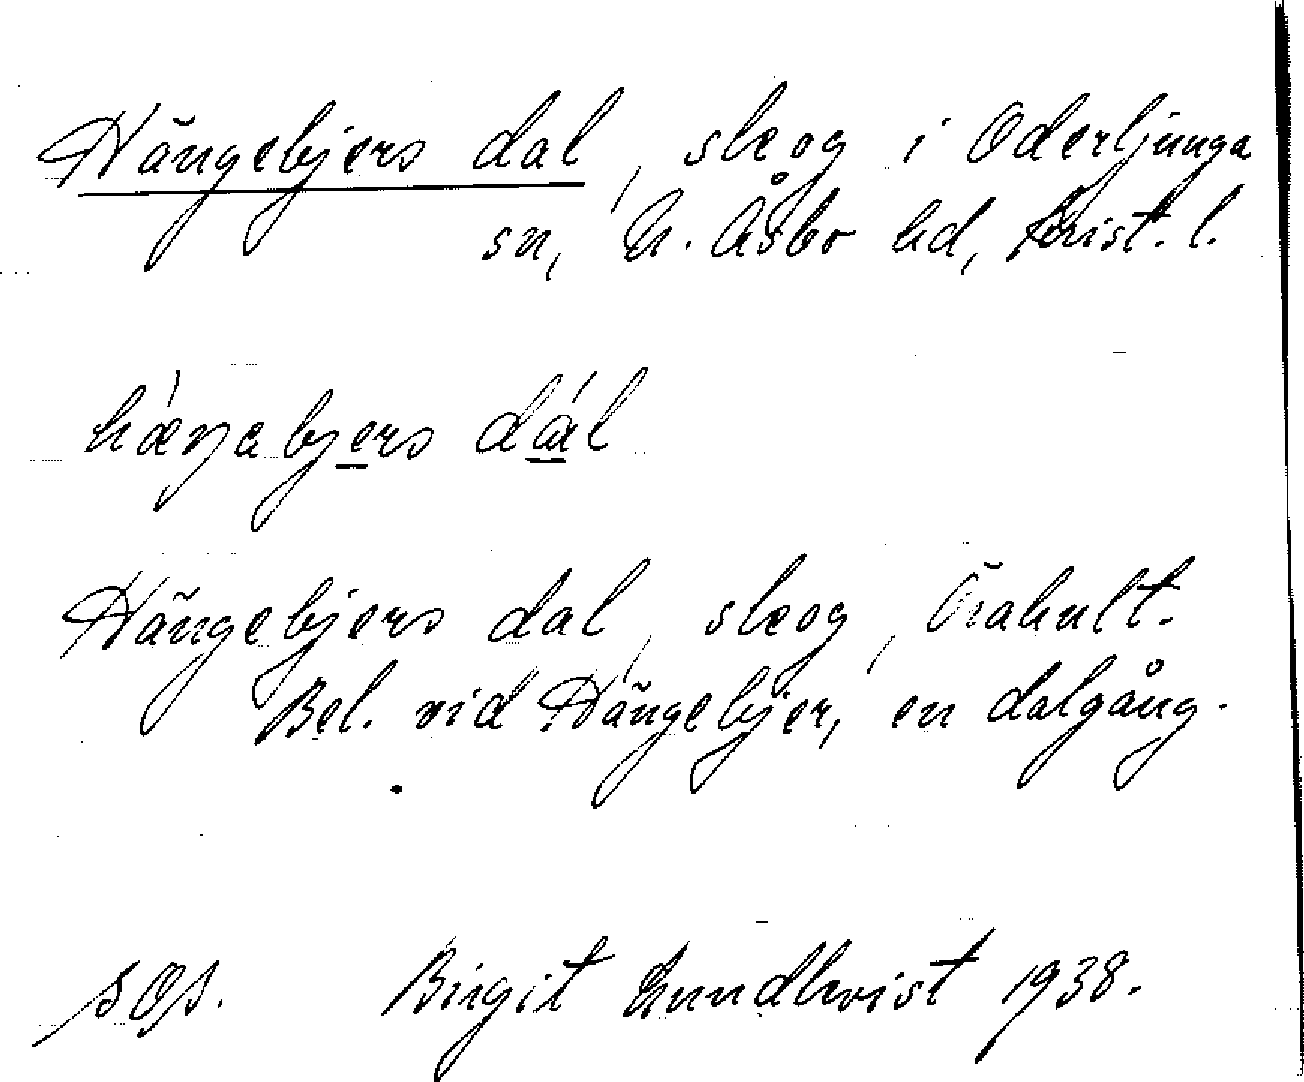 Hängebjers dal, skog i Oderljunga
sn, N. Åsbo hd, Krist. l.
hæŋabjers dál
Hängebjers dal, skog, Örahult.
Bel. vid Hängebjer, en dalgång.
s. Birgit Lundkvist 1938.